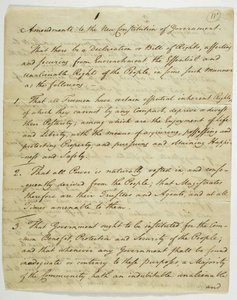 Amendments to the New Constitution of Government.
That there be a Declaration or Bill of Rights, asserting
and securing from Encroachment, the Essential and
unalienable Rights of the People, in some such Manner
as the following.
1. That all Freemen have certain essential inherent Rights
of which they cannot by any Compact, deprive or divest
their Posterity; among which are the Enjoyment of Life
and Liberty, with the means of acquiring, possessing and
protecting Property, and pursuing and obtaining Happi
ness and Safety.
2. That all Power is naturally vested in, and conse-
quently derived from the People; that Magistrates
therefore are their Trustees and Agents, and at all
Times amenable to them.
3. That Government ought to be instituted for the Com
mon Benefit, Protection and Security of the People;
and that whenever any Government shall be found
inadequate or contrary to these purposes, a Majority
of the Community hath an indubitable, unalienable
and